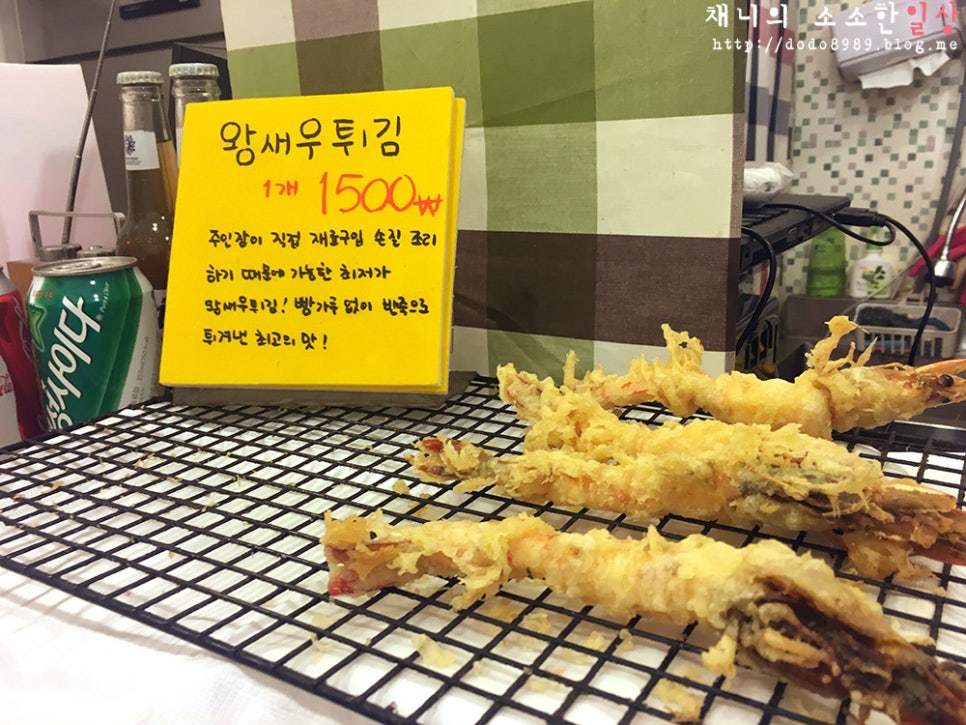 채니의 소소한일상
http://dodo8989.blog.me
왕새우튀김
1개 1500₩
주인장이 직접 재료구입 손질 조리
하기 때문에 가능한 최저가
왕새우튀김! 빵가루 없이 반죽으로
튀겨낸 최고의 맛!
LOTTE
사이다